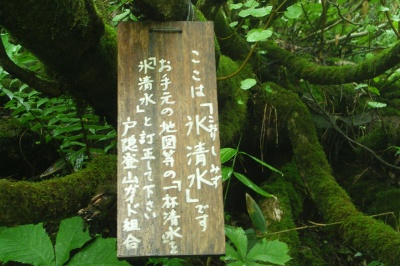 ここは「氷清水」です
お手元の地図等の「一杯清水」を
「氷清水」と訂正して下さい
戸隠登山ガイド組合